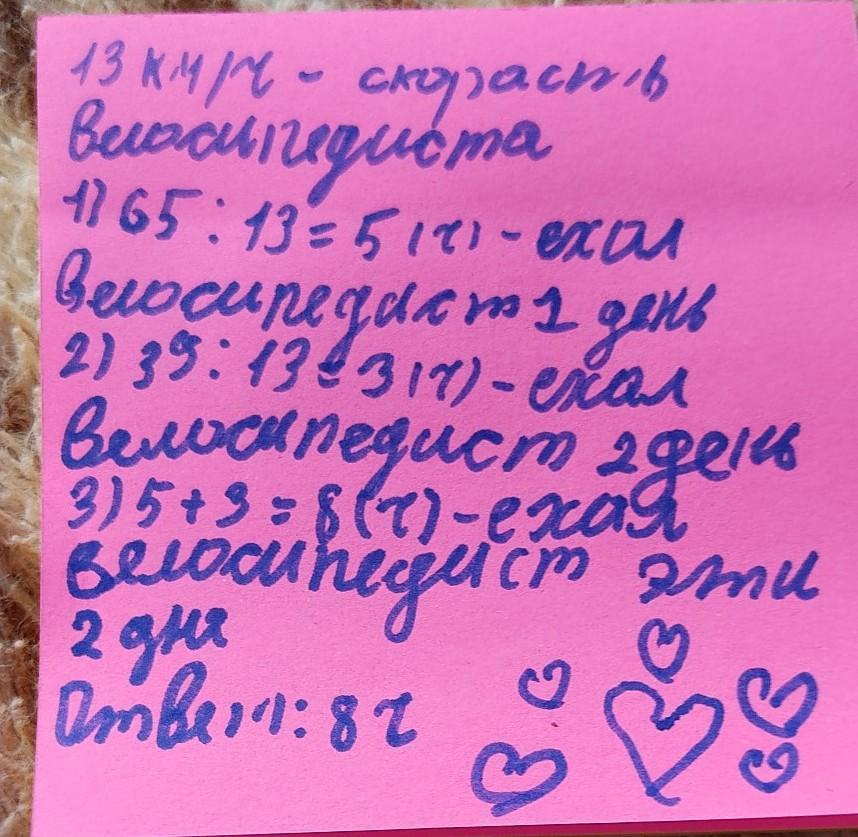 13 км/ч - скорасть
велосипедиста
1) 65 : 13 = 5 (ч) - ехал
велосипедист 1 день
2) 39 : 13 = 3 (ч) - ехал
велосипедист 2 день
3) 5 + 3 = 8 (ч) - ехал
велосипедист эти
2 дня
Ответ: 8 ч